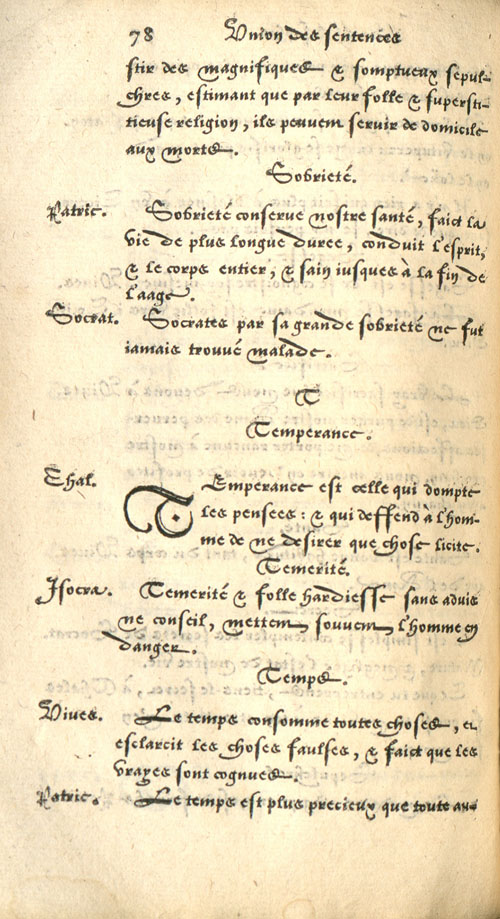 78 Vnion des sentences
stir des magnifiques & somptueux sepul-
chres, estimant que par leur folle & supersti-
tieuse religion, ils peuuent seruir de domicile
aux morts.
Sobrieté.
Patric. Sobrieté conserue nostre santé, faict la
vie de plus longue duree, conduit l'esprit,
& le corps entier, & sain iusques à la fin de
l'aage.
Socrat. Socrates par sa grande sobrieté ne fut
iamais trouué malade.
T
Temperance.
Thal. TEmperance est celle qui dompte
les pensees: & qui deffend à l'hom-
me de ne desirer que chose licite.
Temerité.
Isocra. Temerité & folle hardiesse sans aduis
ne conseil, mettent souuent l'homme en
danger.
Temps.
Viues. Le temps consomme toutes choses, et
esclarcit les choses faulses, & faict que les
vrayes sont cognues.
Patric. Le temps est plus precieux que toute au-